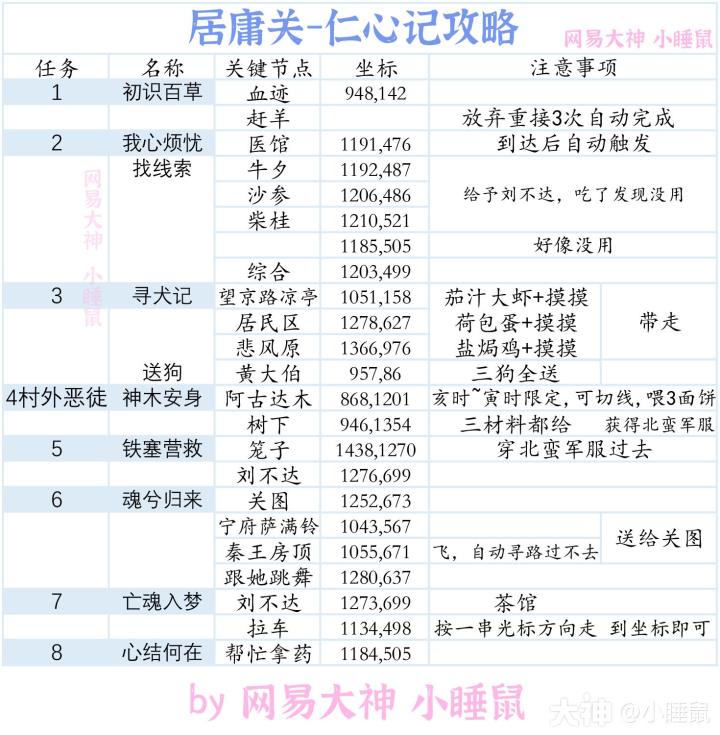 居庸关-仁心记攻略
网易大神 小睡鼠
任务 名称 关键节点 坐标 注意事项
1 初识百草 血迹 948,142
赶羊 放弃重接3次自动完成
2 我心烦忧 医馆 1191,476 到达后自动触发
找线索 牛夕 1192,487
沙参 1206,486 给予刘不达，吃了发现没用
柴桂 1210,521
1185,505 好像没用
综合 1203,499
网易大神 小睡鼠
3 寻犬记 望京路凉亭 1051,158 茄汁大虾+摸摸
居民区 1278,627 荷包蛋+摸摸 带走
悲风原 1366,976 盐焗鸡+摸摸
送狗 黄大伯 957,86 三狗全送
4村外恶徒 神木安身 阿古达木 868,1201 亥时~寅时限定,可切线,喂3面饼
树下 946,1354 三材料都给 获得北蛮军服
5 铁塞营救 笼子 1438,1270 穿北蛮军服过去
刘不达 1276,699
6 魂兮归来 关图 1252,673
宁府萨满铃 1043,567 送给关图
秦王房顶 1055,671 飞，自动寻路过不去
跟她跳舞 1280,637
7 亡魂入梦 刘不达 1273,699 茶馆
拉车 1134,498 按一串光标方向走 到坐标即可
8 心结何在 帮忙拿药 1184,505
by 网易大神 小睡鼠
大神 @小睡鼠